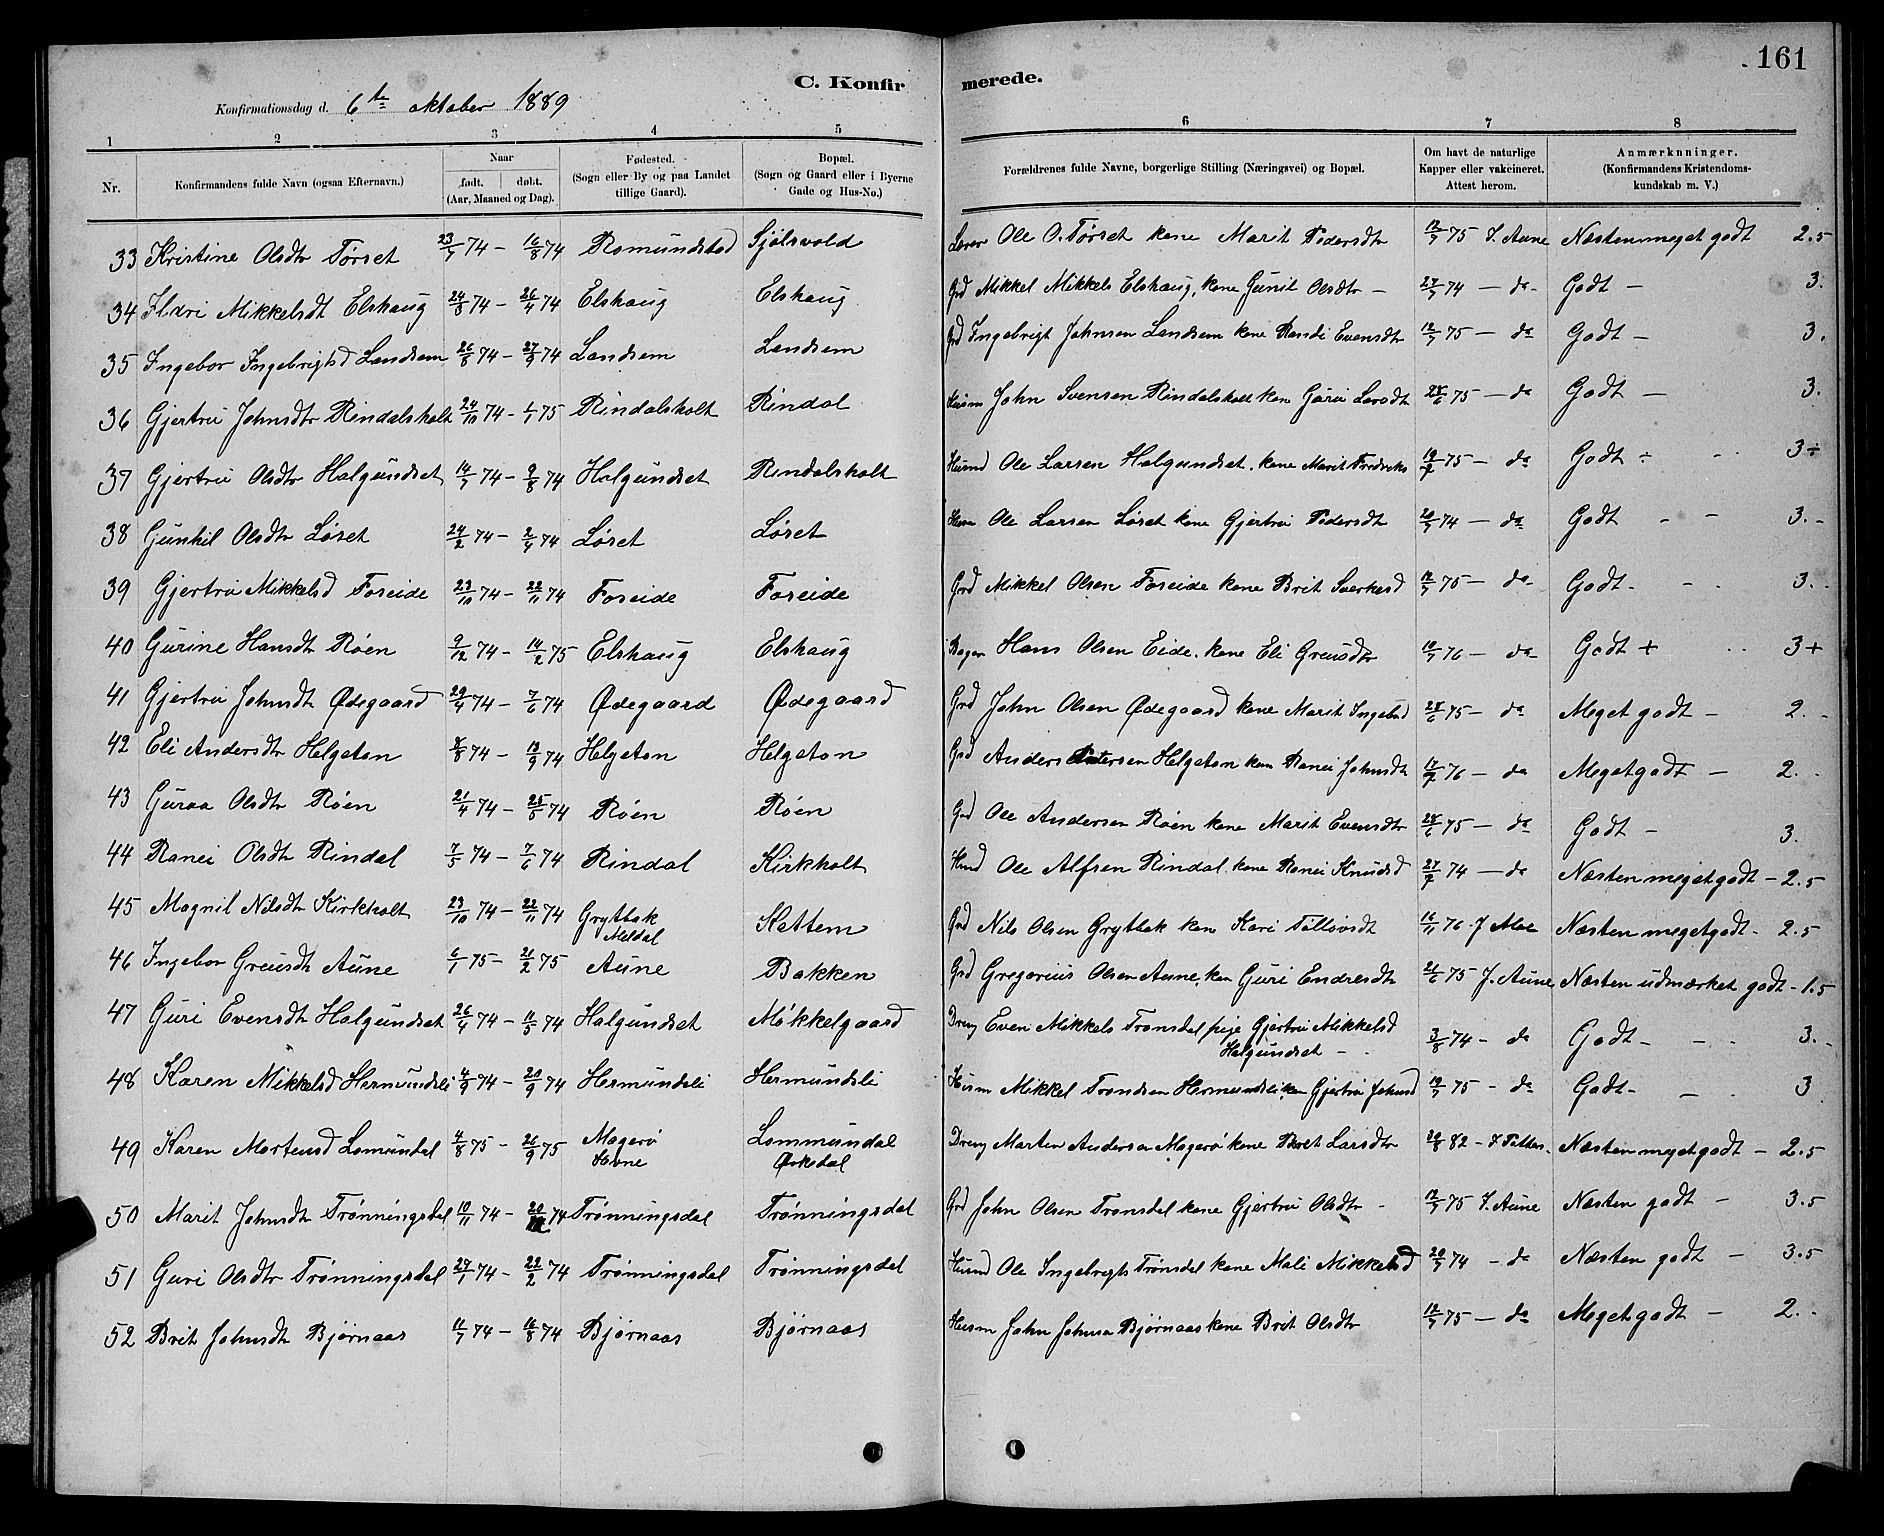 161
C. Konfirmerede.
Konfirmationsdag d. 6te oktober 1889
1 2 3 4 5 6 7 8
Nr. Konfirmandens fulde Navn (ogsaa Efternavn.) Naar født. døbt. (Aar, Maaned og Dag). Fødested. (Sogn eller By og paa Landet tillige Gaard). Bopæl. (Sogn og Gaard eller i Byerne Gade og Hus-No.) Forældrenes fulde Navne, borgerlige Stilling (Næringsvei) og Bopæl. Om havt de naturlige Kapper eller vakcineret. Attest herom. Anmærkninger. (Konfirmandens Kristendomskundskab m. V.)
33 Kristine Olsdtr Tørset 23/7 74 – 16/8 74 Romundstad Sjølsvold Lærer Ole O. Tørset kone Marit Pedersdtr 12/7 75 J. Aune Næstenmeget godt 2.5
34 Ildri Mikkelsdt Elshaug 74 – 26/4 74 Elshaug Elshaug Grd Mikkel Mikkels Elshaug, kone Gunil Olsdtr – 27/7 74 – do Godt – 3.
35 Ingebor Ingebrigtsd Landsem 26/8 74 – 27/9 74 Landsem Landsem Grd Ingebrigt Johnsen Landsem kone Randi Evensdtr 12/7 75 – do Godt – 3.
36 Gjertru Johnsdtr Rindalsholt 24/10 74 – 1/1 75 Rindalsholt Rindal Husm John Svensen Rindalsholt kone Guru Larsdt 28/6 75 – do Godt – 3.
37 Gjertru Olsdtr Halgundset 14/7 74 – 9/8 74 Halgundset Rindalsholt Husmd Ole Larsen Halgundset. kone Marit Fredriks 75 – do Godt ÷ 3÷
38 Gunhil Olsdtr Løset 24/2 74 – 2/4 74 Løset Løset Husm Ole Larsen Løset kone Gjertru Pedersdtr 20/7 74 – do Godt – – 3.–
39 Gjertru Mikkelsd Foseide 23/10 74 – 22/11 74 Foseide Foseide Grd Mikkel Olsen Foseide kone Brit Sverkesd 12/7 75 – do Godt – – 3.
40 Gurine Hansdtr Røen 9/12 74 – 14/2 75 Elshaug Elshaug Bager Hans Olsen Eide. kone Eli Greusdtr 10/7 76 – do Godt + 3+
41 Gjertru Johnsdt Ødegaard 29/4 74 – 7/6 74 Ødegaard Ødegaard Grd John Olsen Ødegaard kone Marit Ingebrd 28/6 75 – do Meget godt – 2. –
42 Eli Andersdtr Helgeton 8/8 74 – 13/9 74 Helgeton Helgeton Grd Anders Pedersen Helgeton kone Ranei Johnsdt 76 – do Megetgodt – 2.
43 Guraa Olsdtr Røen 21/4 74 – 25/5 74 Røen Røen Grd Ole Andersen Røen kone Marit Evensdtr 28/6 75 – do Godt – 3.
44 Ranei Olsdtr Rindal 7/5 74 – 7/6 74 Rindal Kirkholt Husmd Ole Alfsen Rindal. kone Ranei Knudsd 27/7 74 – do Næsten megetgodt – 2.5
45 Magnil Nilsdtr Kirkholt 23/10 74 – 22/11 74 Grytbak Meldal Kattem Grd Nils Olsen Grytbak kone Kari Tollovsdt 16/11 76 J Moe Næsten megetgodt – 2.5
46 Ingebor Greusdtr Aune 6/1 75 – 21/2 75 Aune Bakken Grd Gregorius Olsen Aune, kone Guri Endresdt 21/6 75 J. Aune Næsten udmærket godt – 1.5
47 Guri Evensdtr Halgundset 26/4 74 – 11/5 74 Halgundset Møkkelgaard Dreng Even Mikkels Tronsdal pige Gjertru Mikkelsd Halgundset – 3/8 74 – do Godt – – 3. –
48 Karen Mikkelsd Hermundsli 4/9 74 – 20/9 74 Hermundsli Hermundsli Husm Mikkel Trondsen Hermundsli kone Gjertru Johnsd 12/7 75 – do Godt – – 3
49 Karen Mortensd Lomundal 4/8 75 – 26/9 75 Magerö Hevne Lommundal Orkedal Dreng Morten Andersen Magerö kone Beret Larsdtr 20/8 82 – Næsten megetgodt – 2.5
50 Marit Johnsdt Trønningsdal 10/11 74 – 74 Trønningsdal Trønningsdal Grd John Olsen Tronsdal kone Gjertru Olsdtr – 12/7 75 J. Aune Næsten godt – 3.5
51 Guri Olsdtr Trønningsdal 27/1 74 – 22/2 74 Trønningsdal Trønningsdal Husmd Ole Ingebrigts Trønsdal kone Mali Mikkelsd 20/7 74 – do Næsten godt – 3.5
52 Brit Johnsdt Bjørnaas 11/7 74 – 16/8 74 Bjørnaas Bjørnaas Husm John Johnsen Bjørnaas kone Brit Olsdtr 12/7 75 – do Megetgodt – 2.